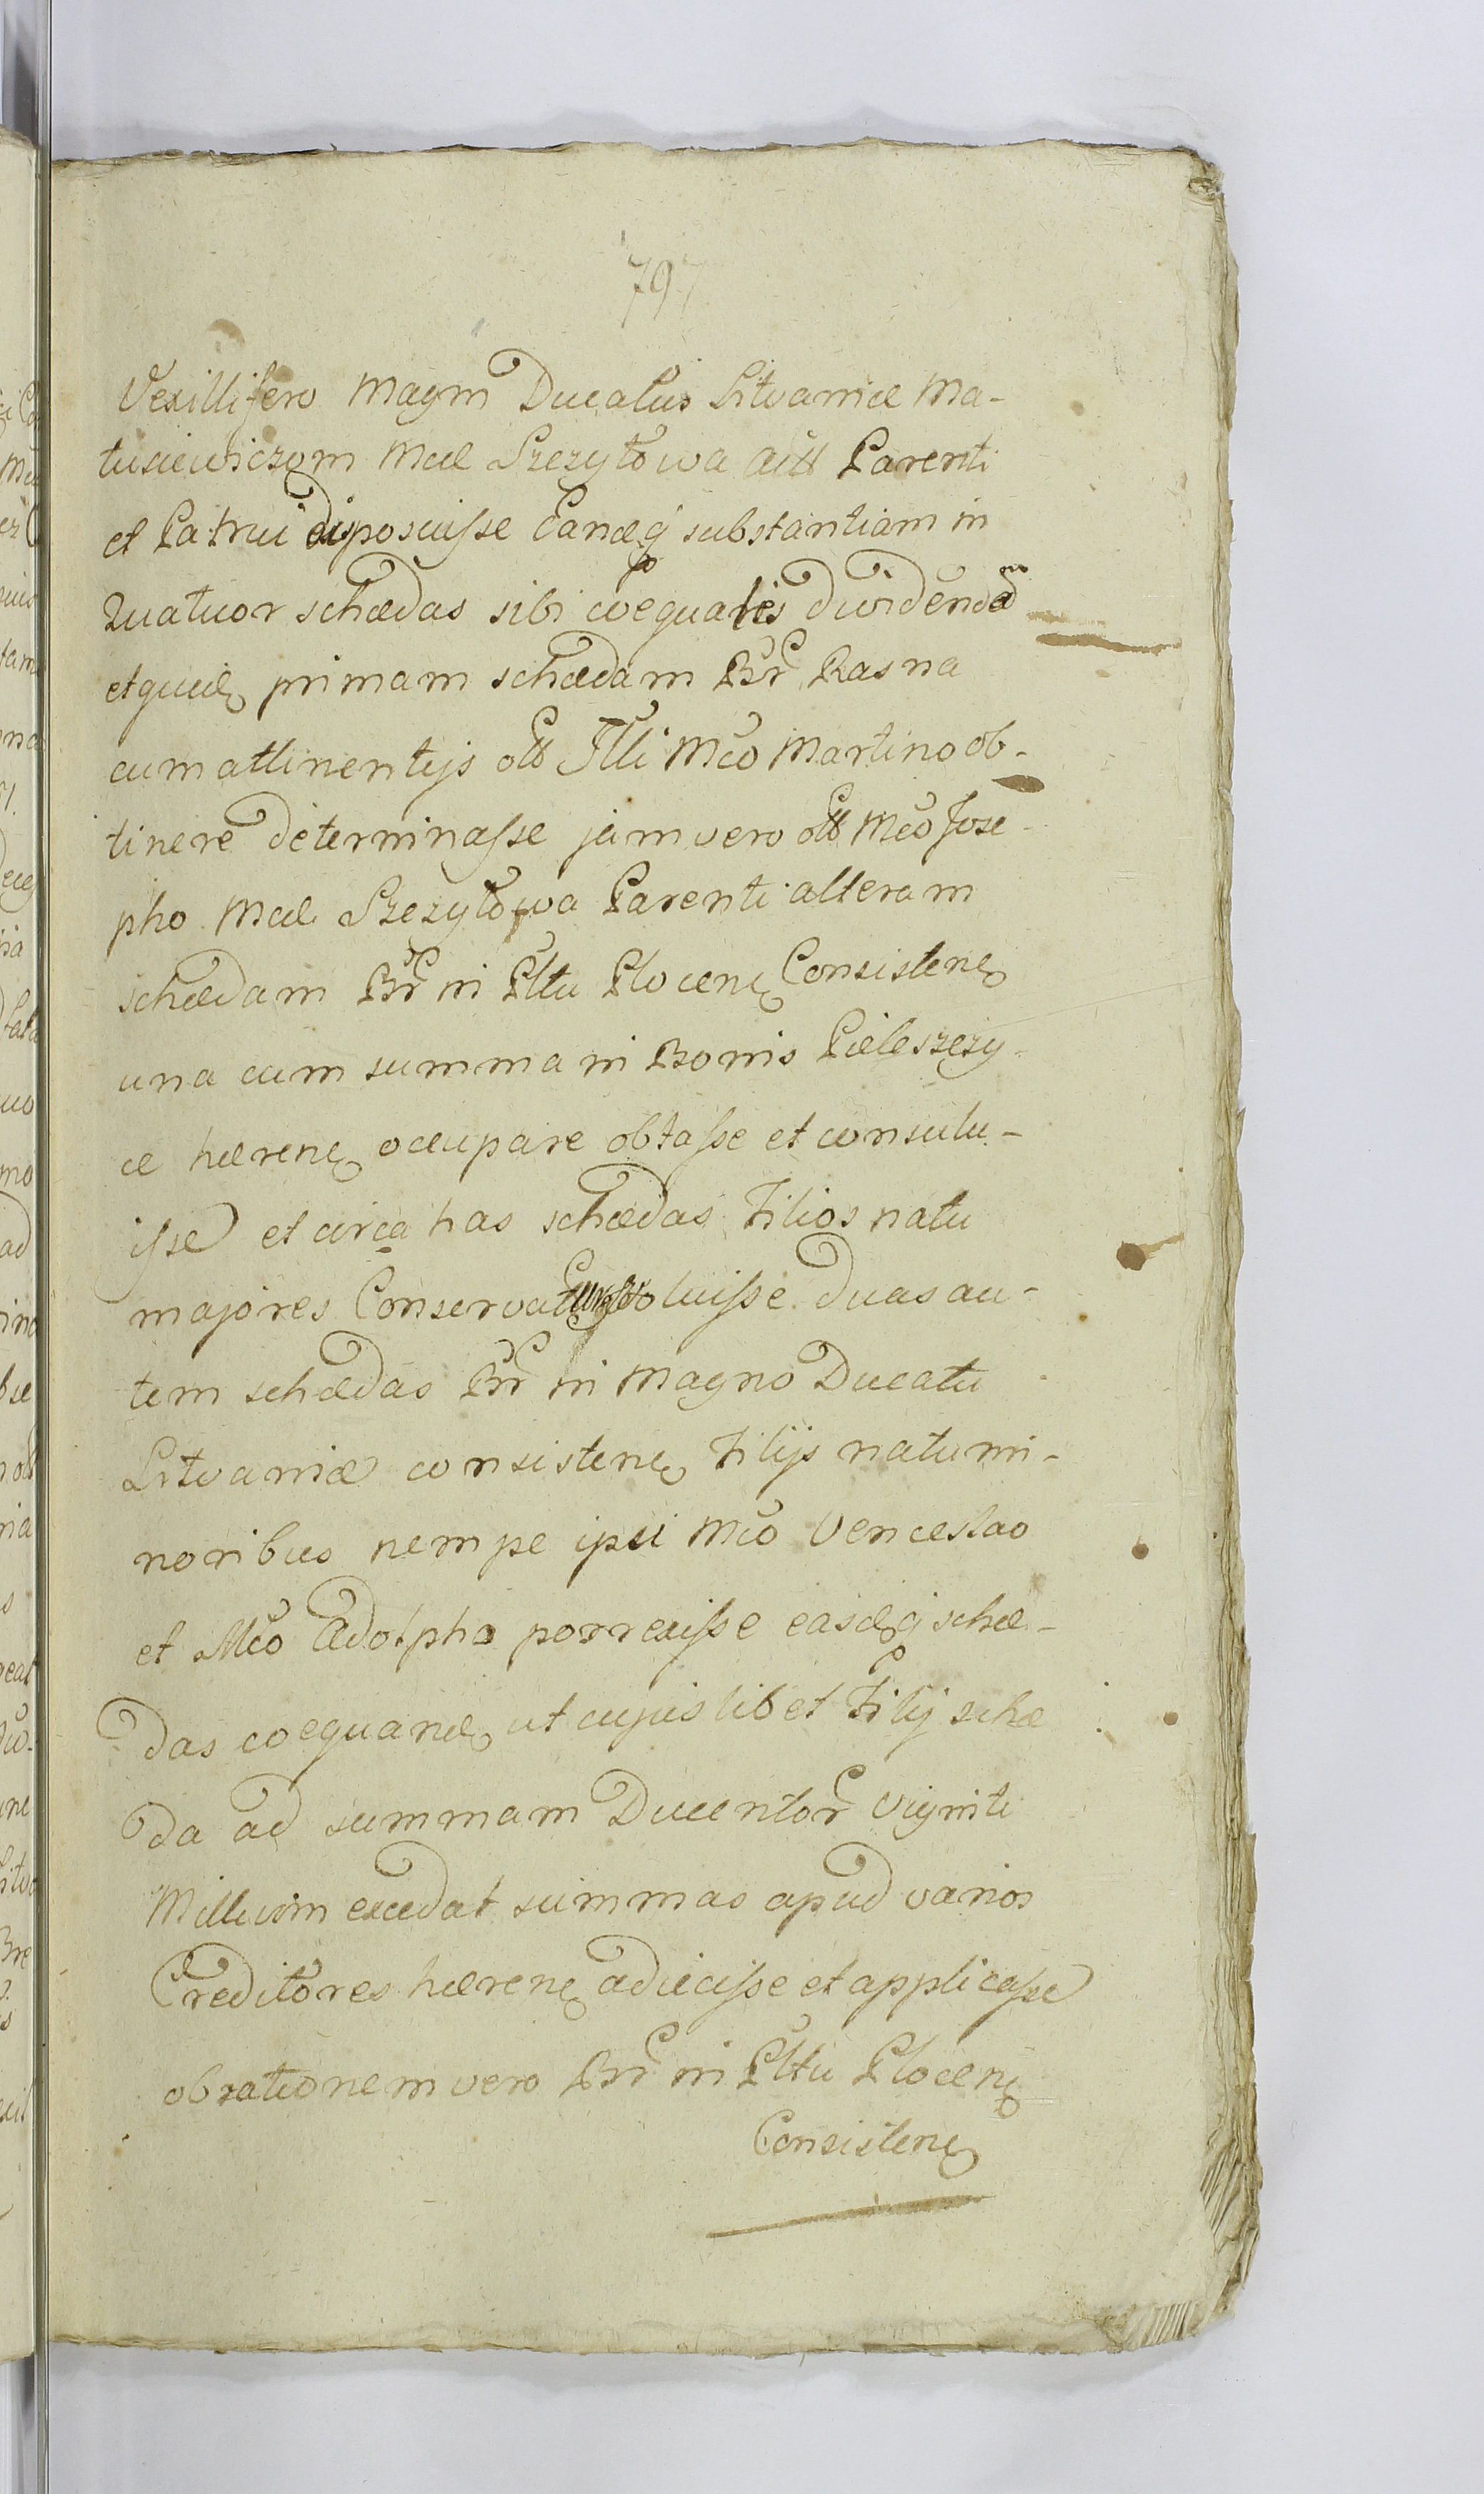 797
Vexillifero Magni Ducatus Litvaniæ Ma-
tusiewiczom Mcæ Szczytowa Parenti
et Patrui disposuisse Eandęq substantiam in
Quatuor schædas sibi coequales dividendam
etquidę primam schædam Brr Rasna
cum attinentijs olt Illi Mco Martino ob-
tinere determinasse jam vero olt Mco Jose-
pho Mcæ Szczytowa Parenti alteram
schædam Brr in Plttu Plocenę Consistenę
una cum summa in Bonis Pieleszczy-
cæ hærenę occupare obtasse et consulu-
isse et circa has schædas Filios natu
majores voluisse. Duas au-
tem schædas Brr in Magno Ducatu
Litvaniæ consistenę Filijs natu mi-
noribus nempe ipsi Mco Venceslao
et Mco Adolpho porrexisse easdęq schæ-
das coequandę ut cujuslibet Filij schæ
da ad summam Ducentor Viginti
Millium excedat summas apud varios
Creditores hærenę adiecisse et applicasse
ob rationem vero Brr in Plttu Plocenę
Consistenę